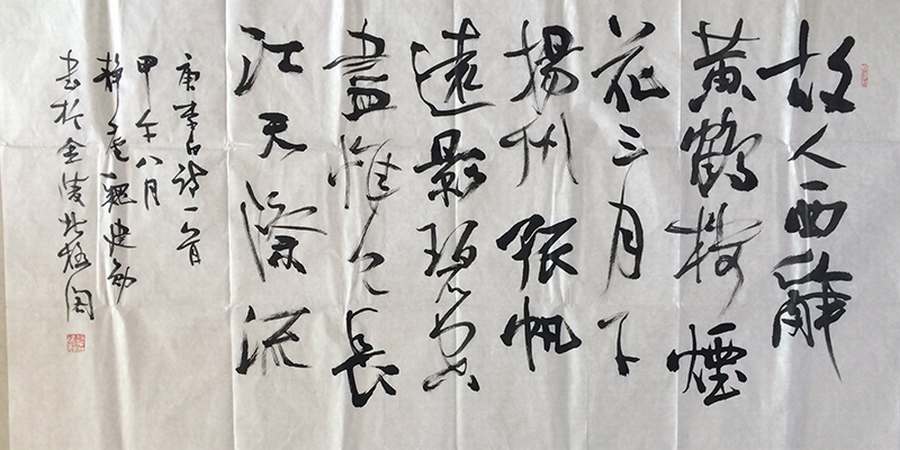 故人西辭
黃鶴樓煙
花三月下
揚州孤帆
遠影碧空
盡惟見長
江天際流
唐李白詩一首
甲午八月
靜 魏建
書於金陵北極閣